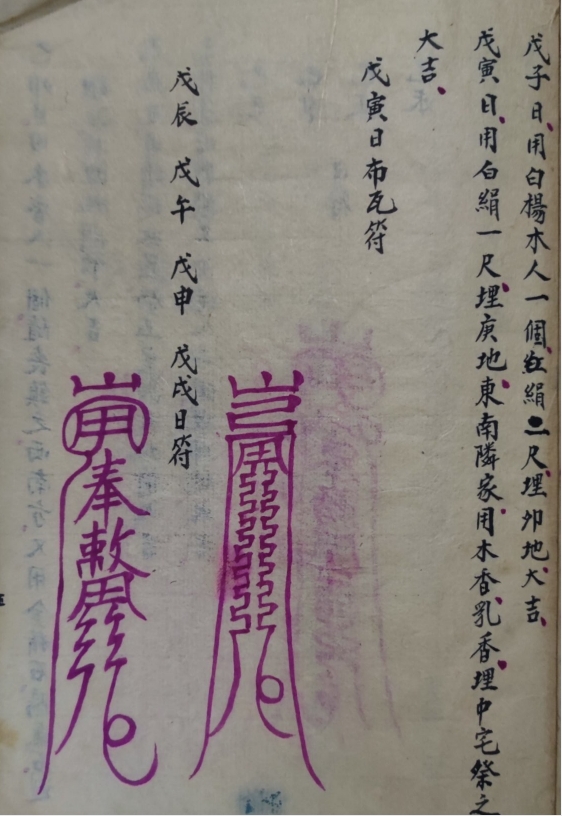 戊子日用白楊木人一個紅絹二尺埋卯地大吉
戊寅日用白絹一尺埋庚地東南隣家用木香乳香埋中宅祭之
大吉
戊寅日布瓦符
戊辰 戊午 戊申 戊戌日符
奉敕